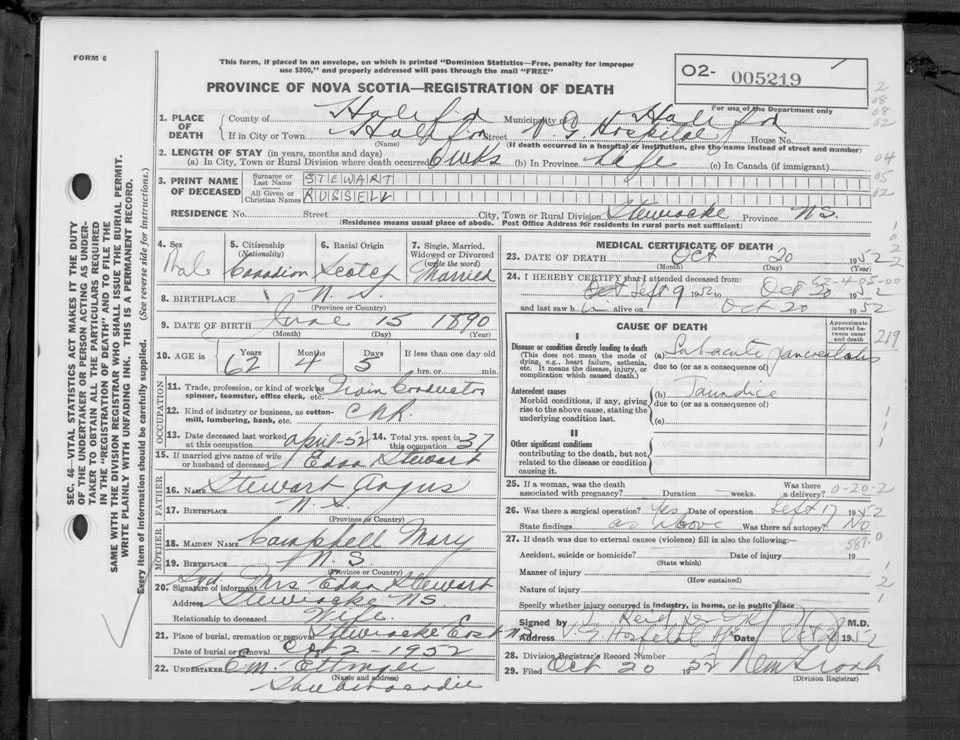 FORM 6
This form, if placed in an envelope, on which is printed "Dominion Statistics—Free, penalty for improper
use $300," and properly addressed will pass through the mail "FREE"
O2- 005219
For use of the Department only
PROVINCE OF NOVA SCOTIA—REGISTRATION OF DEATH
1. PLACE OF DEATH
County of Halifax Municipality of Halifax
If in City or Town Halifax Street V.G. Hospital House No.
(Name) (If death occurred in a hospital or institution, give the name instead of street and number)
2. LENGTH OF STAY (in years, months and days)
(a) In City, Town or Rural Division where death occurred 6 wks (b) In Province Life (c) In Canada (if immigrant)
3. PRINT NAME OF DECEASED
Surname or Last Name STEWART
All Given or Christian Names RUSSELL
RESIDENCE No. Street City, Town or Rural Division Stewiacke Province N.S.
(Residence means usual place of abode. Post Office Address for residents in rural parts not sufficient)
4. Sex Male
5. Citizenship (Nationality) Canadian
6. Racial Origin Scotch
7. Single, Married, Widowed or Divorced (write the word) Married
8. BIRTHPLACE N.S.
(Province or Country)
9. DATE OF BIRTH June 15 1890
(Month) (Day) (Year)
10. AGE in Years 62 Months 4 Days 5 If less than one day
hrs. or min.
OCCUPATION
11. Trade, profession, or kind of work as spinner, teamster, office clerk, etc. Train Conductor
12. Kind of industry or business, as cotton-mill, lumbering, bank, etc. CNR.
13. Date deceased last worked at this occupation April-52 14. Total yrs. spent in this occupation 37
15. If married give name of wife or husband of deceased Edna Stewart
FATHER
16. Name Stewart Angus
17. BIRTHPLACE N.S.
(Province or Country)
MOTHER
18. MAIDEN NAME Campbell Mary
19. BIRTHPLACE N.S.
(Province or Country)
20. Signature of informant Sgd. Mrs Edna Stewart
Address Stewiacke N.S.
Relationship to deceased Wife
21. Place of burial, cremation or removal Stewiacke East N.S.
Date of burial or removal Oct 2 - 1952
22. UNDERTAKER E.M. Ettinger
(Name and address)
Shubenacadie
MEDICAL CERTIFICATE OF DEATH
23. DATE OF DEATH Oct 20 1952
(Month) (Day) (Year)
24. I HEREBY CERTIFY that I attended deceased from:
Sept 9 1952 to Oct 20 1952
and last saw h i alive on Oct 20 1952
CAUSE OF DEATH
Approximate interval between onset and death
I
Disease or condition directly leading to death
(This does not mean the mode of dying, e.g., heart disease, asthenia, etc. It means the disease, injury, or complication which caused death.)
(a) Subacute pancreatitis
due to (or as a consequence of)
Antecedent causes
Morbid conditions, if any, giving rise to the above cause, stating the underlying condition last.
(b) Jaundice
due to (or as a consequence of)
(c)
II
Other significant conditions
contributing to the death, but not related to the disease or condition causing it.
25. If a woman, was the death associated with pregnancy? Duration weeks. Was there a delivery? 0-20-2
26. Was there a surgical operation? Yes Date of operation Sept 17 1952
State findings as above Was there an autopsy? No
27. If death was due to external causes (violence) fill in also the following:— 587.0
Accident, suicide or homicide? Date of injury 19
(State which)
Manner of injury
(How sustained)
Nature of injury
Specify whether injury occurred in industry, in home, or in public place
Signed by M.D.
Address V.G. Hospital Date Oct 1952
28. Division Registrar's Record Number
29. Filed Oct 20 1952
(Division Registrar)
SEC. 46—VITAL STATISTICS ACT MAKES IT THE DUTY
OF THE UNDERTAKER OR PERSON ACTING AS UNDER-
TAKER TO OBTAIN ALL THE PARTICULARS REQUIRED
IN THE "REGISTRATION OF DEATH" AND TO FILE THE
SAME WITH THE DIVISION REGISTRAR WHO SHALL ISSUE THE BURIAL PERMIT.
WRITE PLAINLY WITH UNFADING INK. THIS IS A PERMANENT RECORD.
Every item of information should be carefully supplied. (See reverse side for instructions.)
2
08
08
02
04
05
02
219